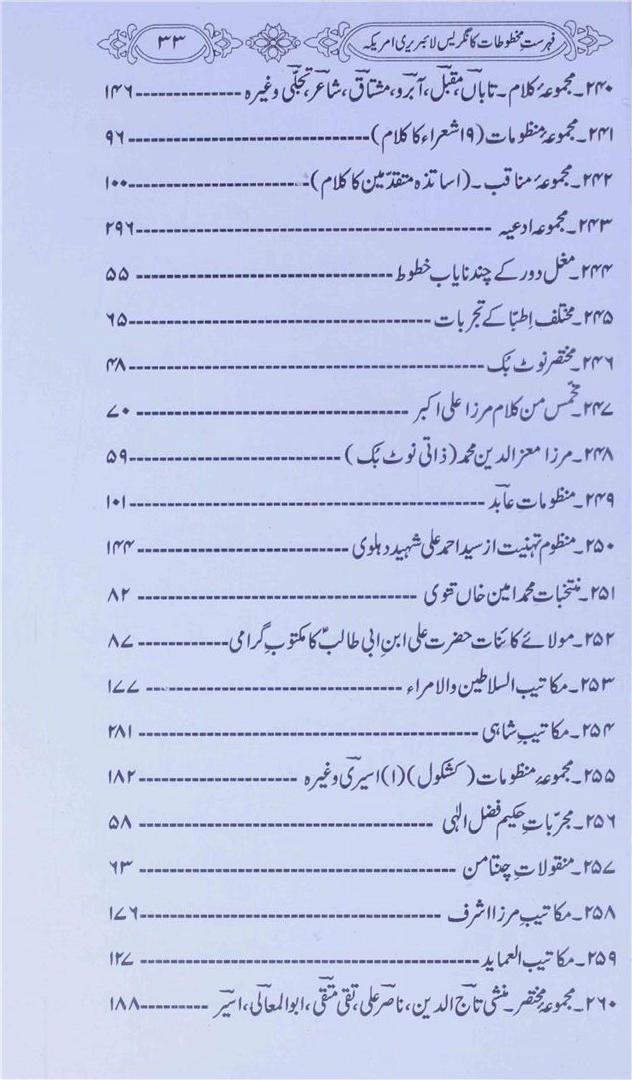 فہرست مخطوطات کانگریس لائبریری امریکہ ۳۳
۲۴۰۔مجموعۂ کلام۔تاباں،مقبل،آبرو،مشتاق،شاعر،تجلّی وغیرہ ---------------۱۴۶
۲۴۱۔مجموعۂ منظومات (۱۹ شعراء کا کلام) ------------------------------۹۶
۲۴۲۔مجموعۂ مناقب۔(اساتذہ متقدّمین کا کلام)------------------------۱۰۰
۲۴۳۔مجموعہ ادعیہ ----------------------------------------۲۹۶
۲۴۴۔مغل دور کے چند نایاب خطوط ----------------------------- ۵۵
۲۴۵۔مختلف اِطبّا کے تجربات ----------------------------------۶۵
۲۴۶۔مختصر نوٹ بُک ----------------------------------------۴۸
۲۴۷۔مخمّس من کلام مرزا علی اکبر ------------------------------- ۷۰
۲۴۸۔مرزا معز الدین محمد (ذاتی نوٹ بُک) ------------------------۵۹
۲۴۹۔منظومات عابد ----------------------------------------۱۰۱
۲۵۰۔منظوم تہنیت از سید احمد علی شہید دہلوی ------------------------ ۱۴۴
۲۵۱۔منتخبات محمد امین خاں تقوی -------------------------------- ۸۲
۲۵۲۔مولائے کائنات حضرت علی ابنِ ابی طالبؑ کا مکتوبِ گرامی------------ ۸۷
۲۵۳۔مکاتیب السلاطین والامراء ----------------------------- ۱۷۷
۲۵۴۔مکاتیبِ شاہی --------------------------------------- ۲۸۱
۲۵۵۔مجموعۂ منظومات (کشکول) (۱) اسیری وغیرہ ------------------ ۱۸۲
۲۵۶۔مجرّباتِ حکیم فضل الٰہی ---------------------------------- ۵۸
۲۵۷۔منقولاتِ چنتامن ------------------------------------ ۶۳
۲۵۸۔مکاتیبِ مرزا اشرف ----------------------------------۱۷۶
۲۵۹۔مکاتیب العماید -------------------------------------- ۱۲۷
۲۶۰۔مجموعۂ مختصر۔منشی تاج الدین،ناصر علی،تقی متقی،ابوالمعالی،اسیر ----------۱۸۸